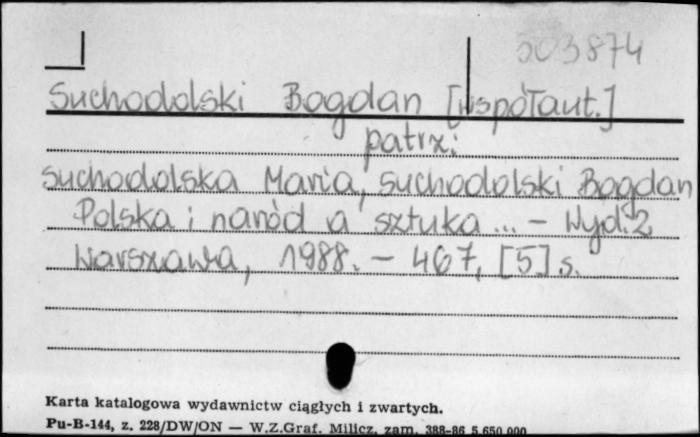 503874
Suchodolski Bogdan [współaut.]
patrz:
Suchodolska Maria, Suchodolski Bogdan
Polska i naród a sztuka ... – Wyd. 2
Warszawa, 1988. – 467, [5] s.
Karta katalogowa wydawnictw ciągłych i zwartych.
Pu-B-144, z. 228/DW/ON — W.Z.Graf. Milicz, zam. 388-86 5.650.000